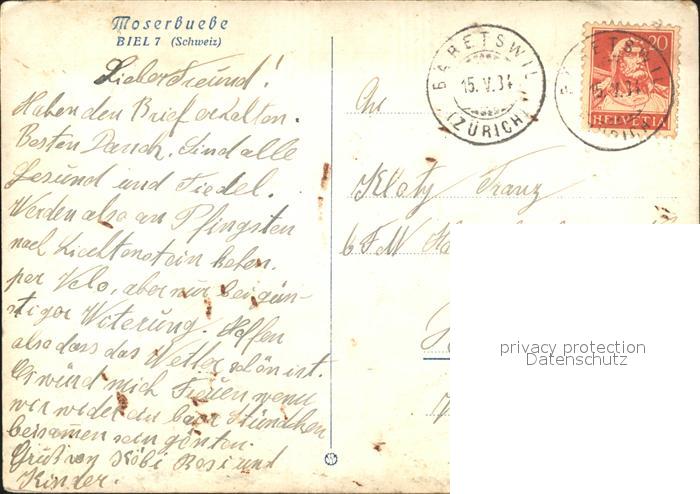 Moserbuebe
BIEL 7 (Schweiz)
Lieber Freund!
Haben den Brief erhalten.
Besten Danck. Sind alle
Gesund und Fiedel.
Werden also an Pfingsten
nach Liechtenstein kohen.
per Velo, aber nur bei gün-
stiger Witerung. Hoffen
also dass das Wetter schön ist.
Es würd mich Freuen wenn
wir wieder ein baar Stündchen
beisamen sein gönten.
Gruß von Köbi Rosi und
Kinder.
BÄRETSWIL
15.V.34
(ZÜRICH)
20
HELVETIA
BÄRETSWIL
15.V.34
(ZÜRICH)
An
Franz
privacy protection
Datenschutz